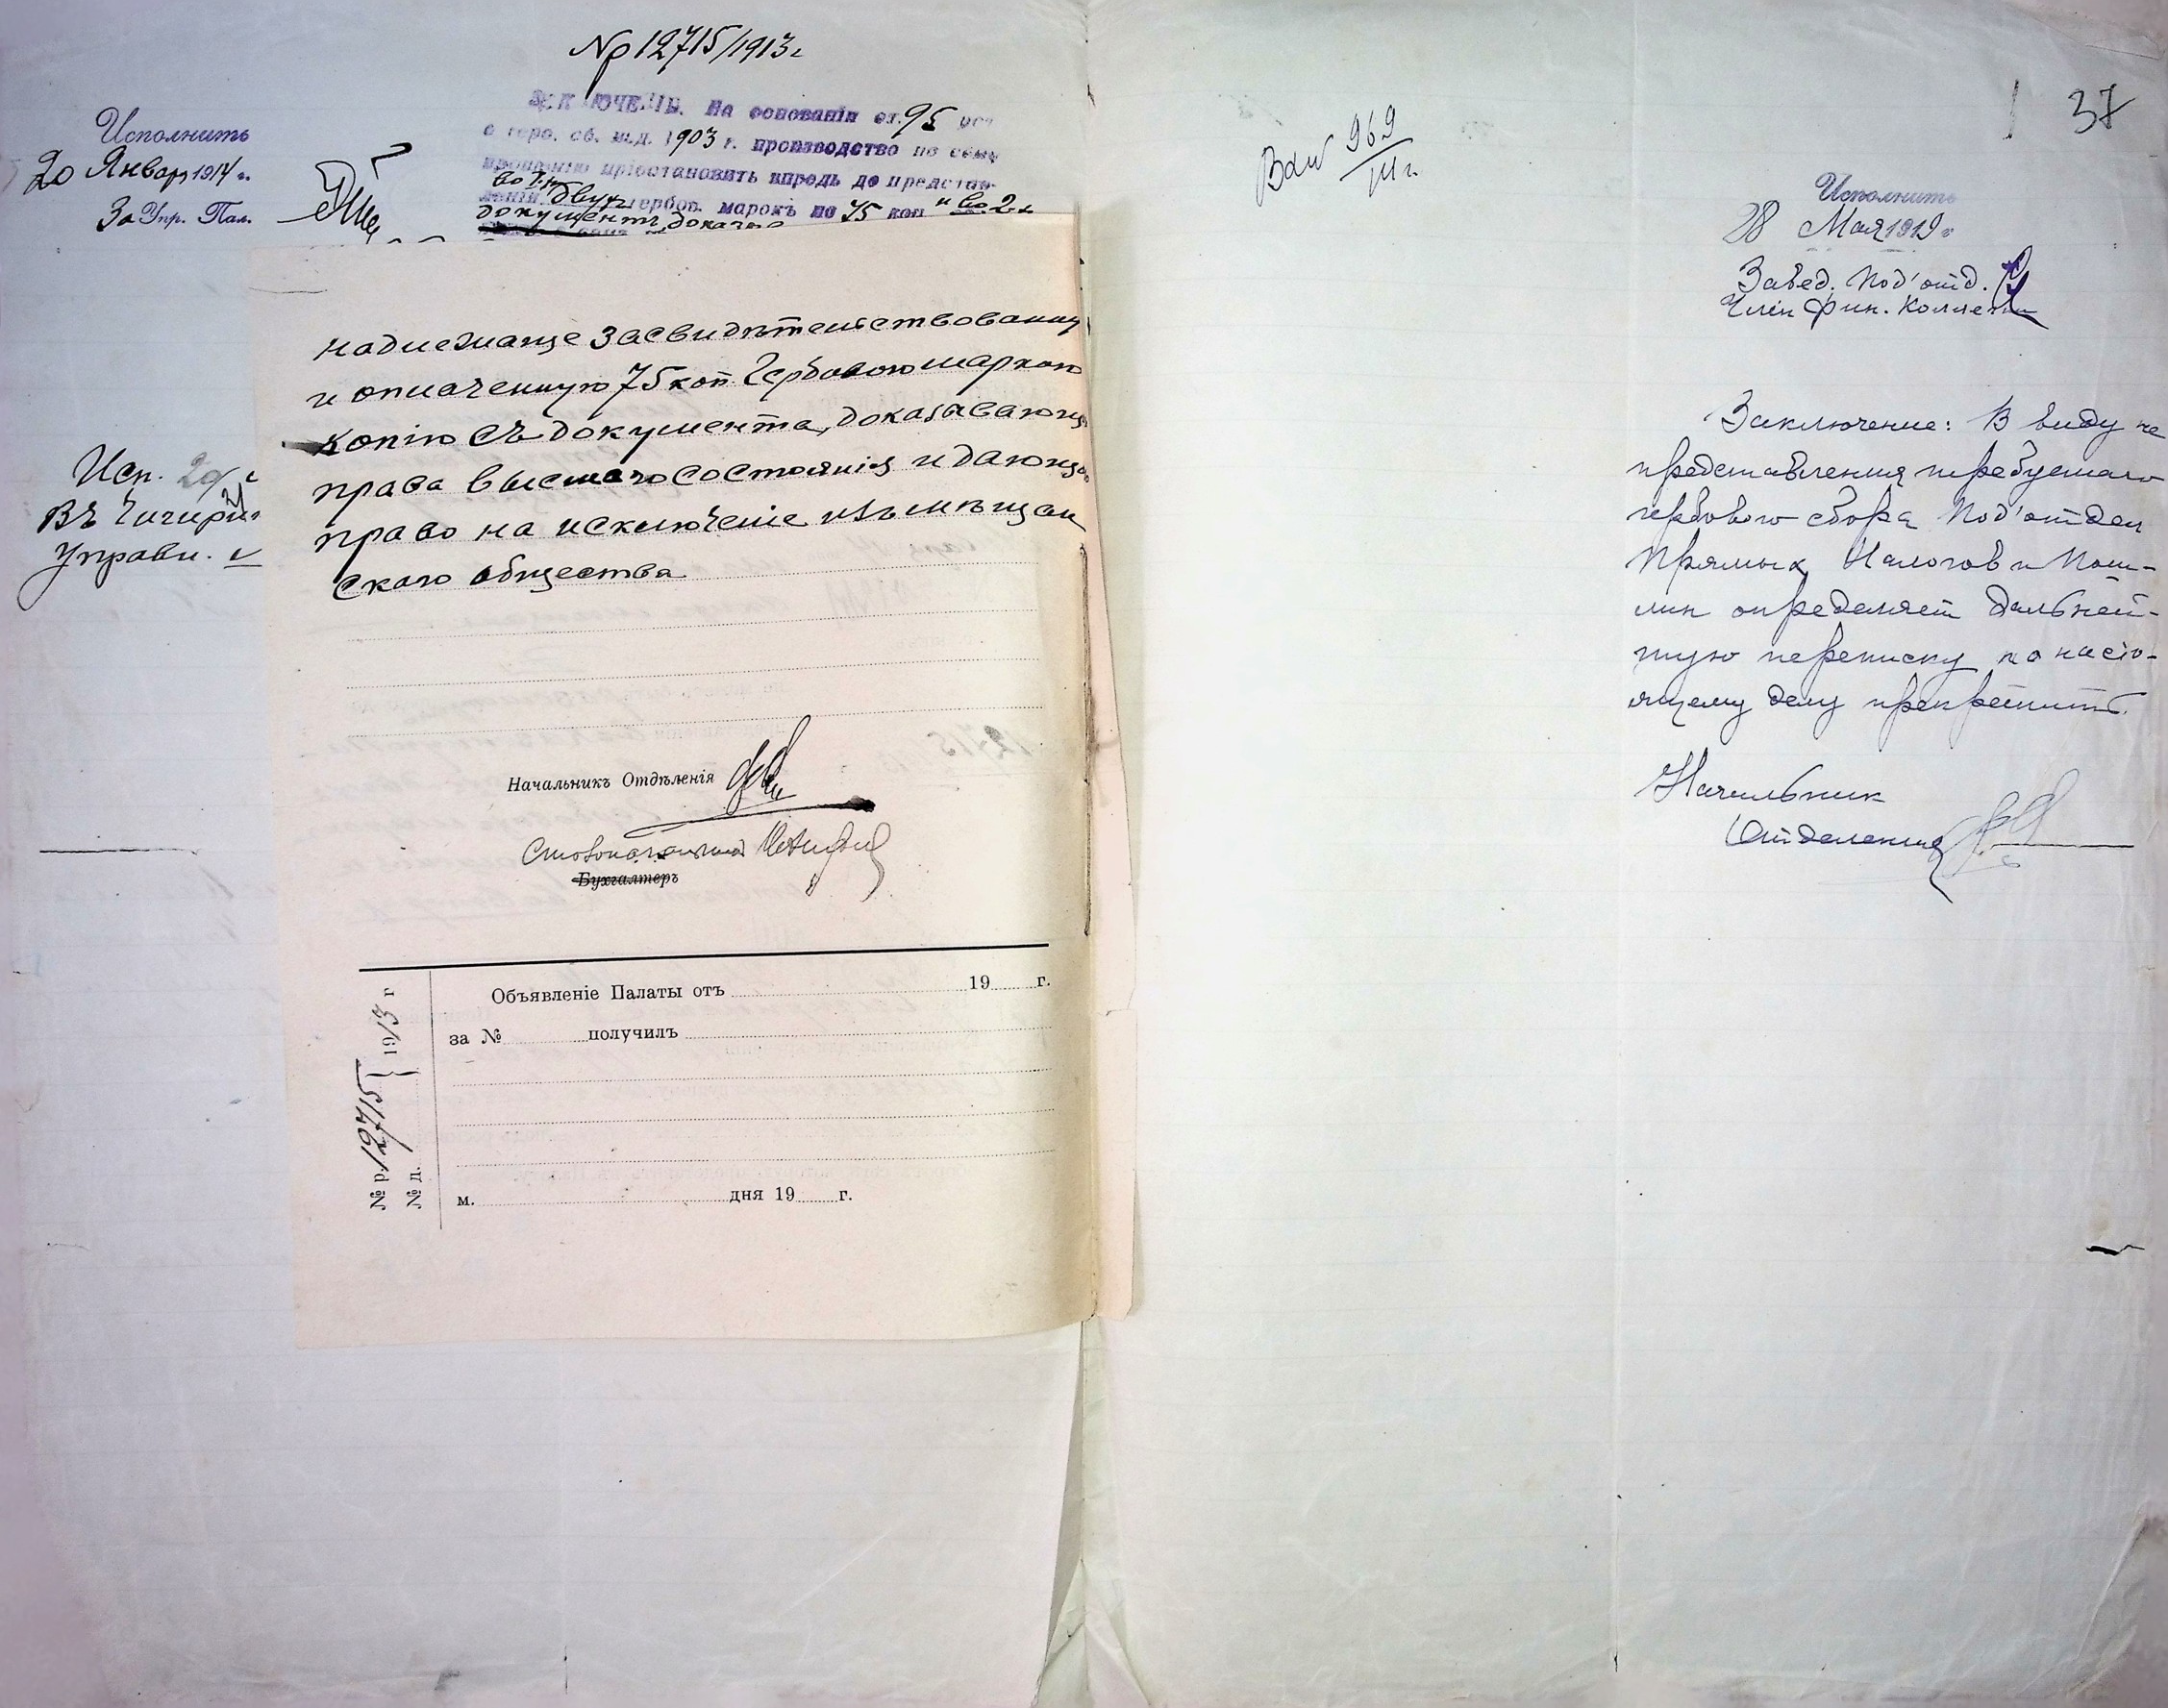 №р 12715/1913 г
Исполнить
20 Января 1914 г.
За Упр. Пал.
ЗАКЛЮЧЕНІЕ. На основаніи ст. 95 уст
о герб. сб. изд. 1903 г. производство по сему
прошенію пріостановить впредь до представ-
во 1-хъ
леніи двухъ гербов. марокъ по 75 коп и во 2-х
документъ, доказыв
надлежаще засвидѣтельствованную
и оплаченную 75 коп. Гербовою маркою
копію съ документа, доказывающ
права высшаго состоянія и дающ
право на исключеніе изъ мѣщан
скаго общества
Исп.
Въ Чигирин
Управл.
Начальникъ Отдѣленія
Столоначальникъ
Бухгалтеръ
Объявленіе Палаты отъ 19 г.
за № получилъ
м. дня 19 г.
№ р. 12715 } 1913 г
№ д.
969
37
Исполнить
28 Мая 1919 г
Завед. Под'отд.
Член Фин. Коллегии
Заключение: В виду не
представления требуемаго
гербового сбора Под'отдел
Прямых Налогов и Пош-
лин определяет дальней-
шую переписку по насто-
ящему делу прекратить.
Начальник
Отделения